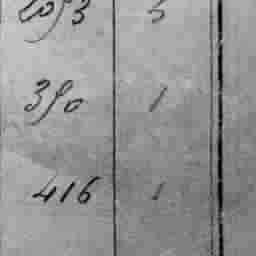 2093 5
390 1
416 1